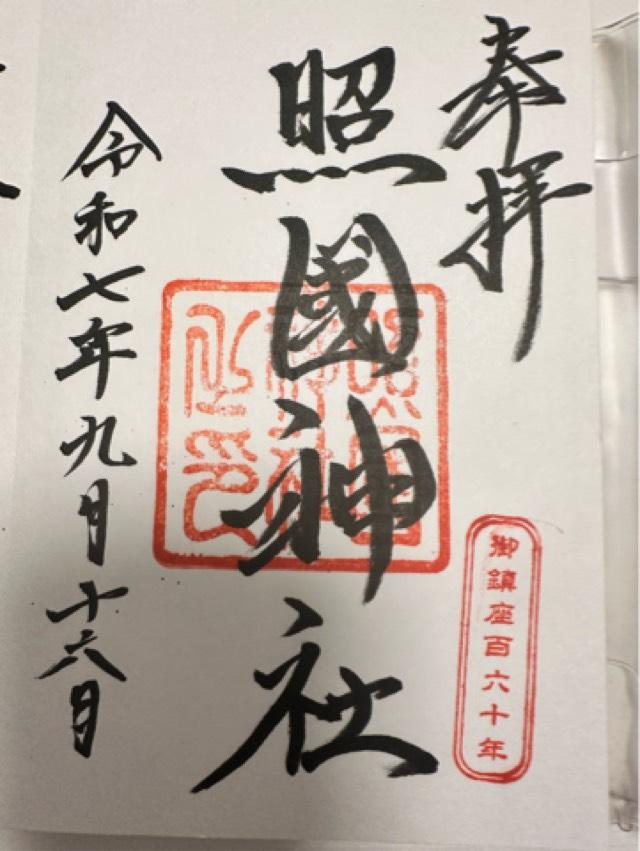 奉拝
照國神社
令和七年九月十六日
御鎮座百六十年